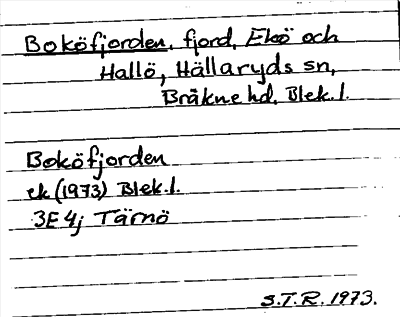 Boköfjorden, fjord, Ekö och
Hallö, Hällaryds sn,
Bräkne hd, Blek. l.
Boköfjorden
ek (1973) Blek. l.
3E 4j Tärnö
S.T.R. 1973.